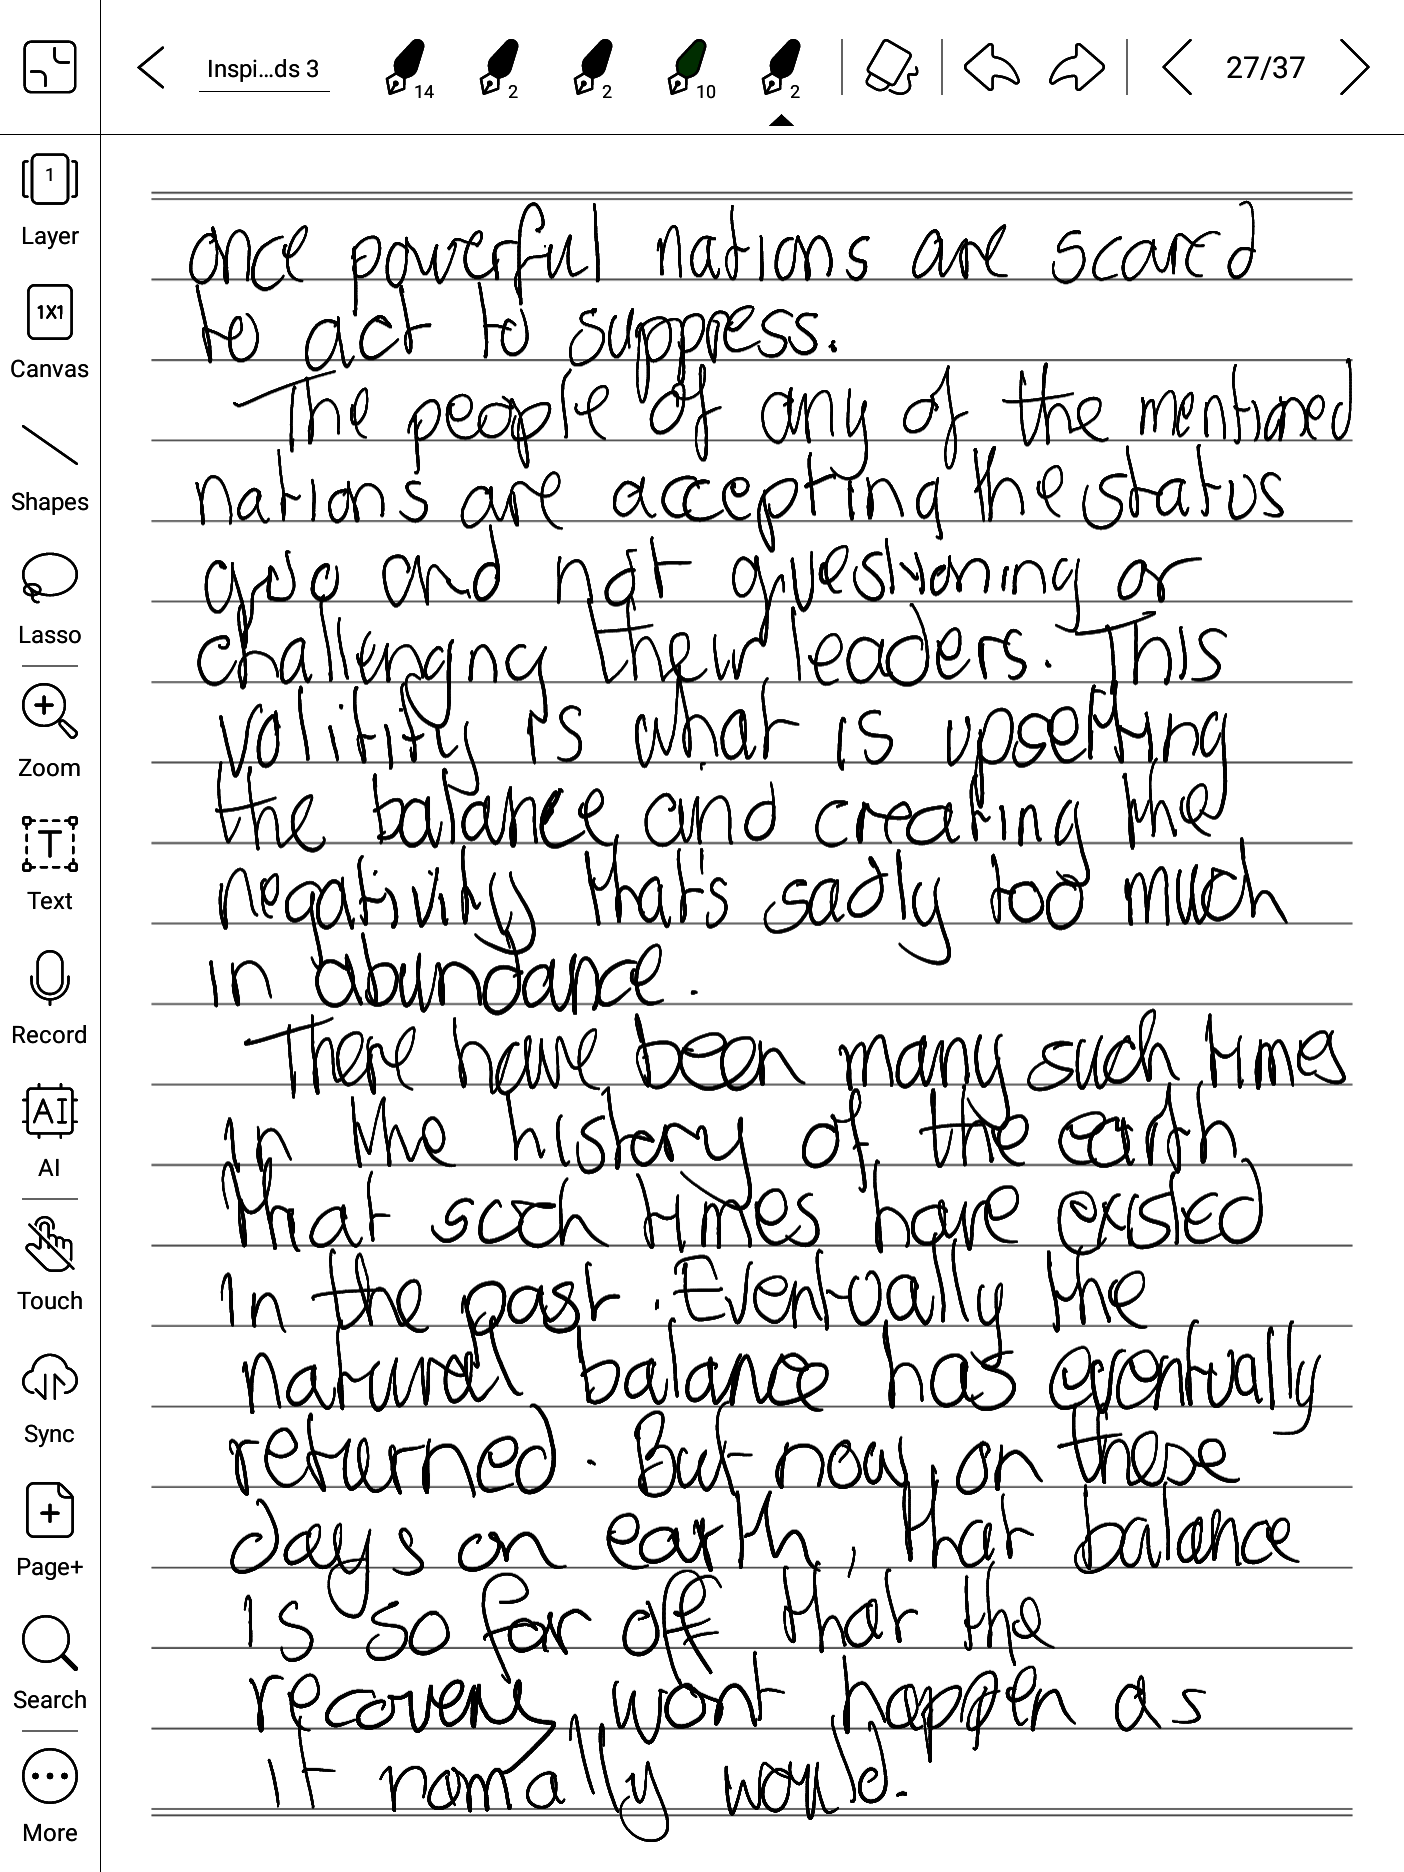 Inspi...ds 3
14
2
2
10
2
27/37
1
Layer
1X1
Canvas
Shapes
Lasso
Zoom
T
Text
Record
AI
AI
Touch
Sync
Page+
Search
More
once powerful nations are scared
to act to suppress.
The people of any of the mentioned
nations are accepting the status
quo and not questioning or
challenging their leaders. This
volitity is what is upsetting
the balance and creating the
negativity that's sadly too much
in abundance.
There have been many such times
in the history of the earth
that such times have existed
in the past. Eventually the
natural balance has eventually
returned. But now, on these
days on earth, that balance
is so far off that the
recovery wont happen as
it normally would.